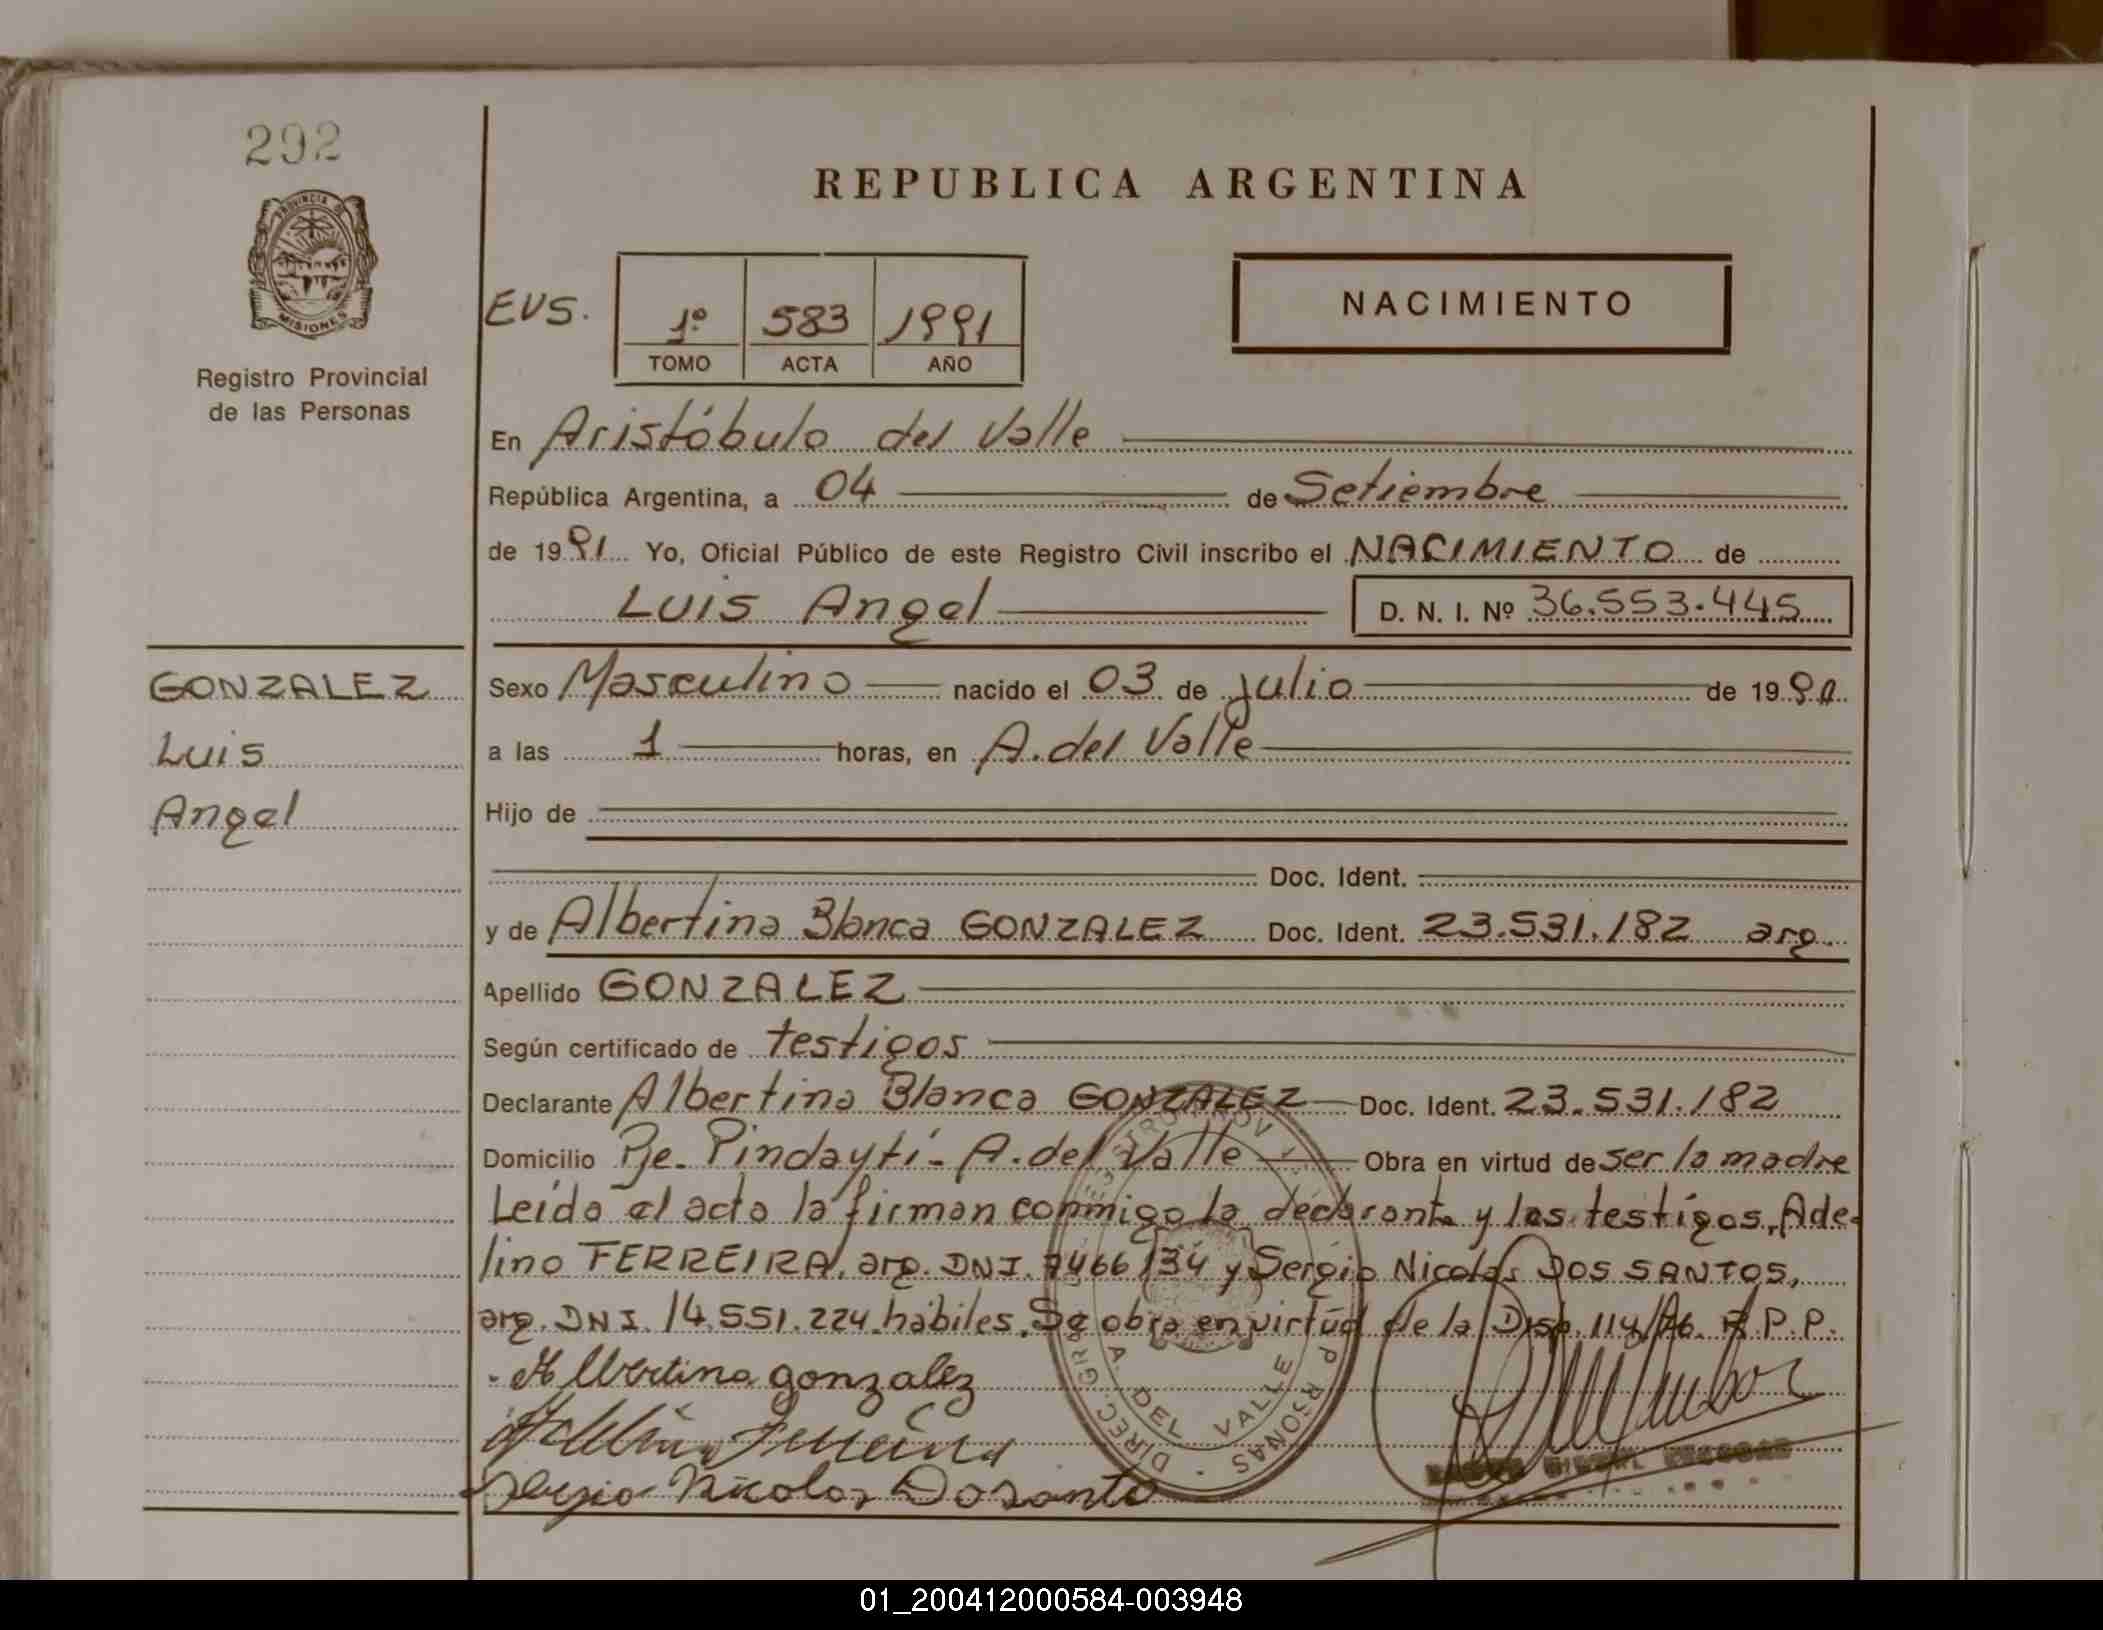 292
PROVINCIA DE
MISIONES
Registro Provincial
de las Personas
REPUBLICA ARGENTINA
EVS.
1º 583 1991
TOMO ACTA AÑO
NACIMIENTO
En Aristóbulo del Valle
República Argentina, a 04 de Setiembre
de 1991 Yo, Oficial Público de este Registro Civil inscribo el NACIMIENTO de
Luis Angel D. N. I. Nº 36.553.445
GONZALEZ
Luis
Angel
Sexo Masculino nacido el 03 de julio de 19
a las 1 horas, en A. del Valle
Hijo de
Doc. Ident.
y de Albertina Blanca GONZALEZ Doc. Ident. 23.531.182 arg.
Apellido GONZALEZ
Según certificado de testigos
Declarante Albertina Blanca GONZALEZ Doc. Ident. 23.531.182
Domicilio Pje. Pindaytí - A. del Valle Obra en virtud de ser la madre
Leída el acta la firman conmigo la declarante y los testigos, Ade-
lino FERREIRA, arg. DNI. 7466134 y Sergio Nicolas DOS SANTOS,
arg. DNI. 14.551.224 hábiles. Se obra en virtud de la Disp. 114/76. R.P.P.
Albertina gonzalez
Sergio Nicolas Dosanto
A. DEL VALLE
01_200412000584-003948